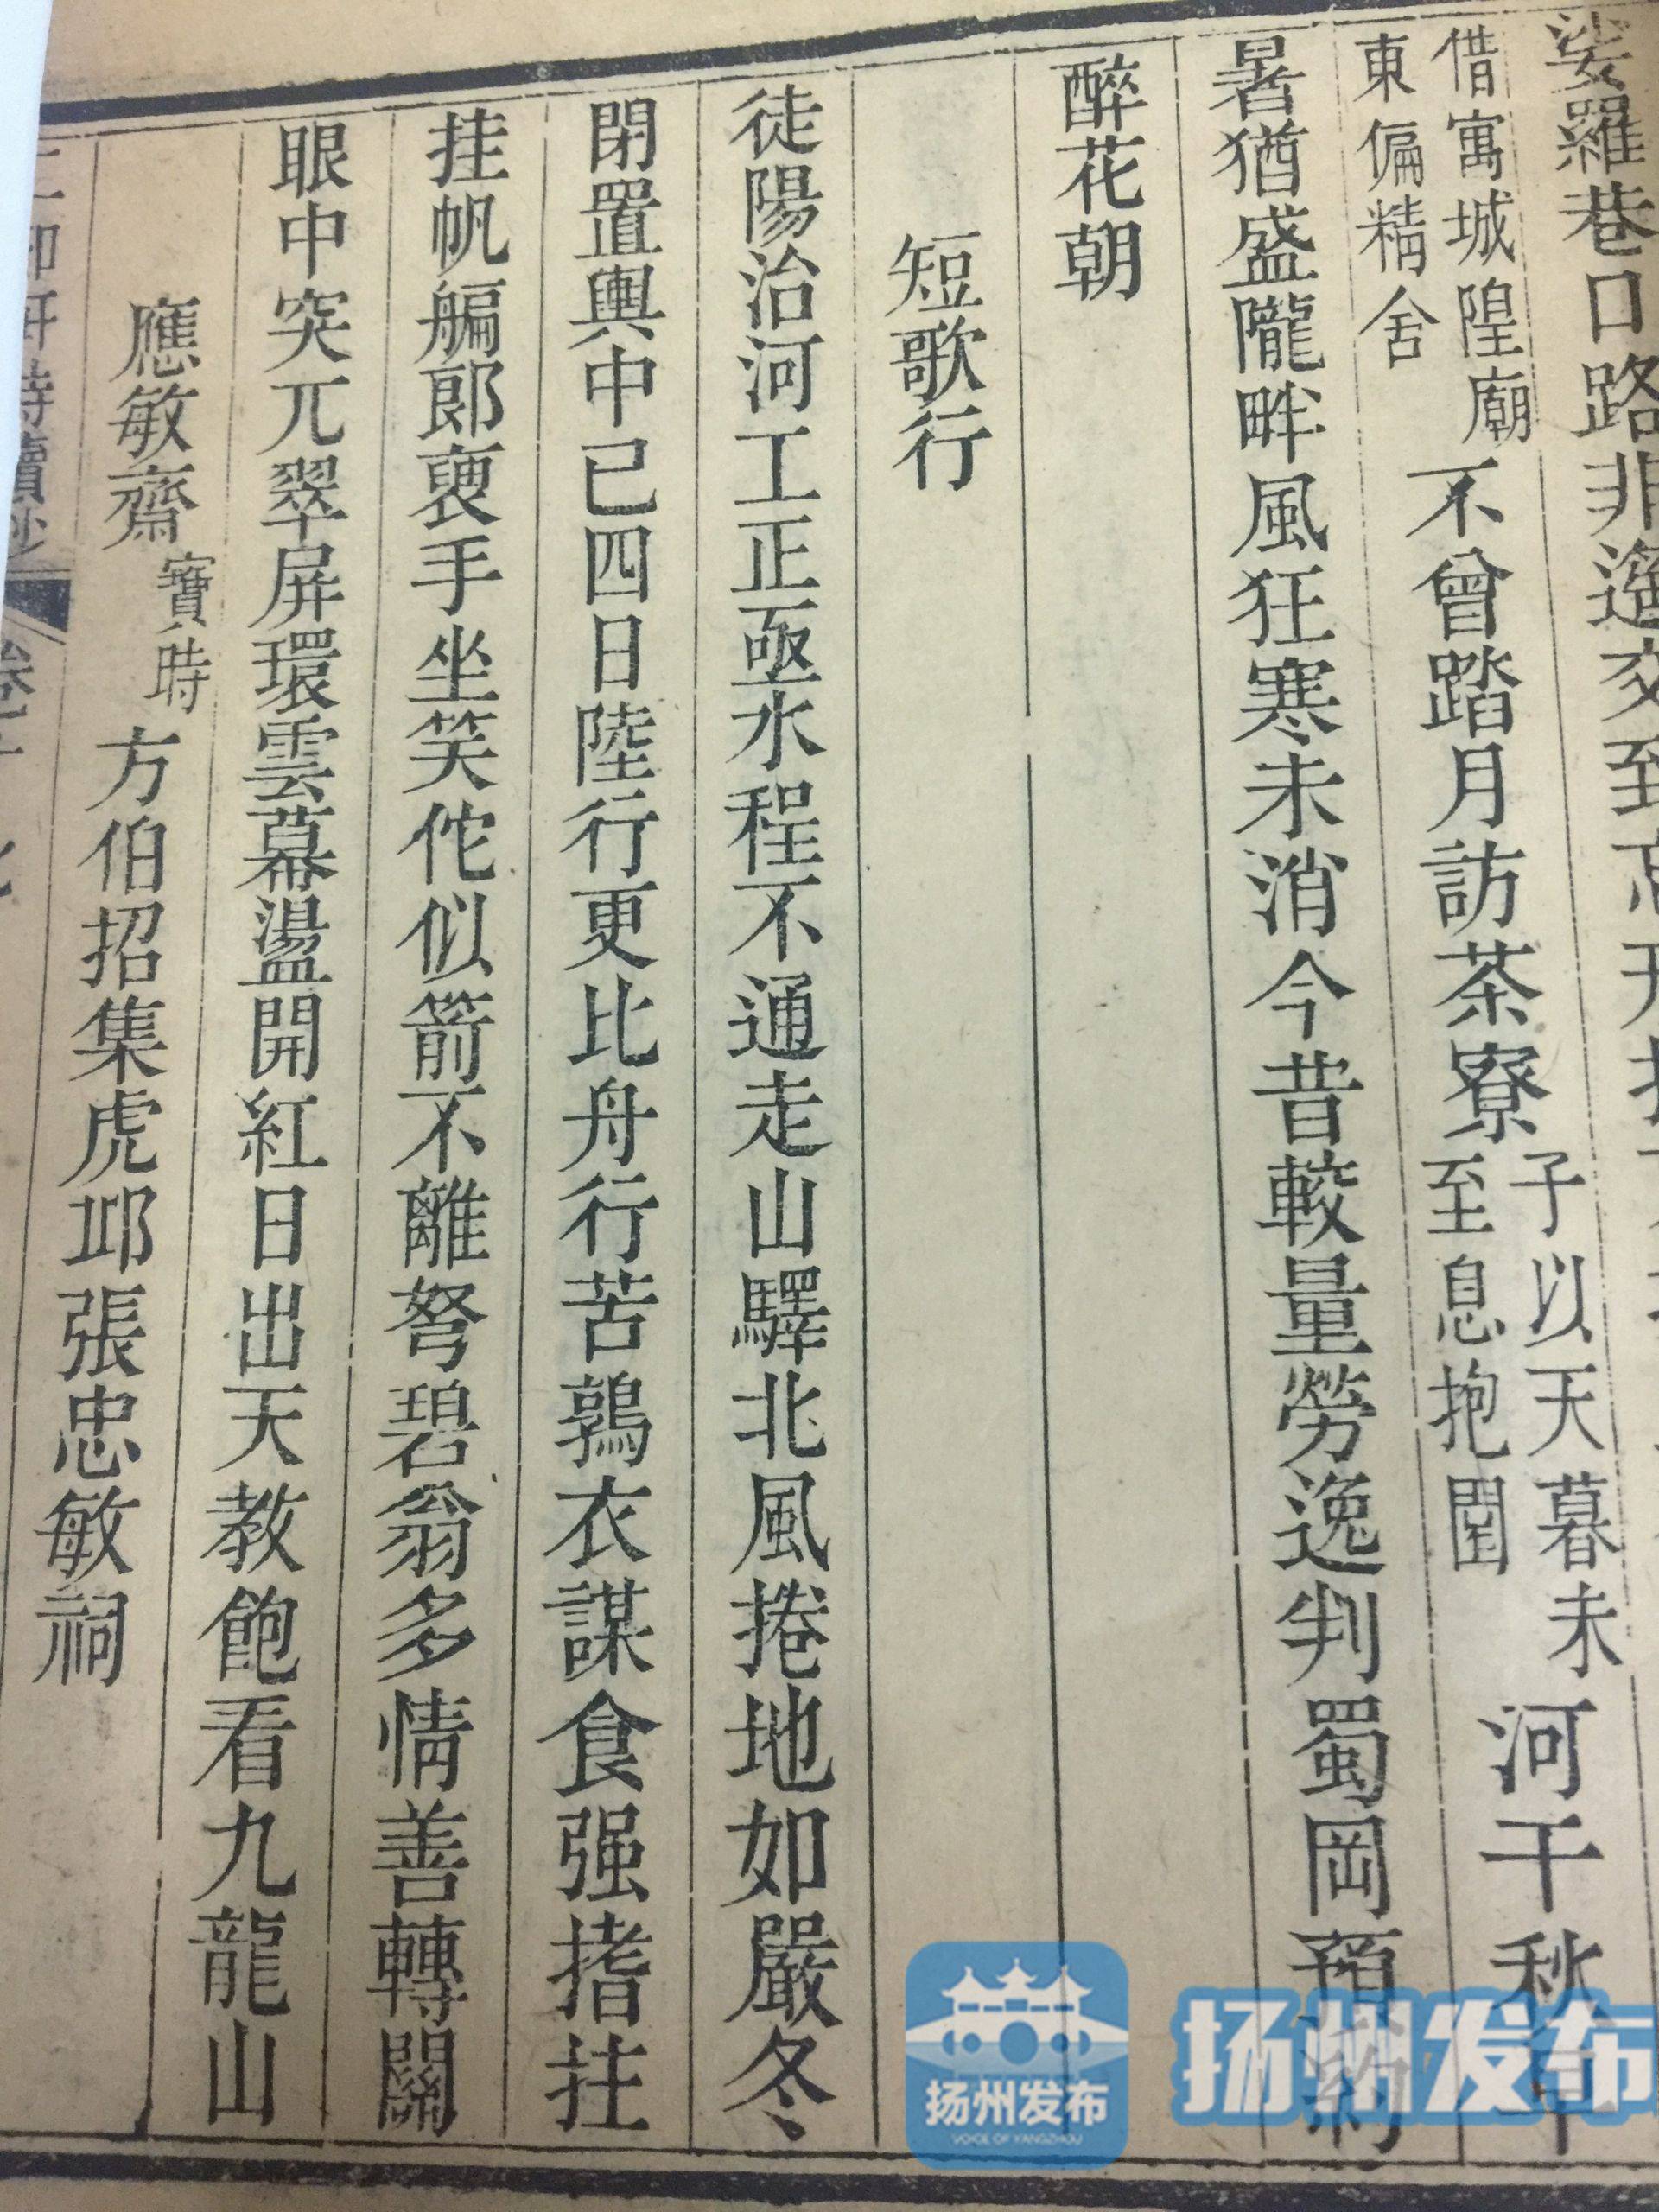 娑羅巷口路非遙交到忘形
借寓城隍廟
東偏精舍
不曾踏月訪茶寮
子以天暮未
至息抱園
河干秋
暑猶盛隴畔風狂寒未消今昔較量勞逸判蜀岡預約
醉花朝
短歌行
徒陽治河工正亟水程不通走山驛北風捲地如嚴冬
閉置輿中已四日陸行更比舟行苦鶉衣謀食强搘拄
挂帆艑郎褏手坐笑佗似箭不離弩碧翁多情善轉關
眼中突兀翠屏環雲幕盪開紅日出天教飽看九龍山
應敏齋
寶時
方伯招集虎邱張忠敏祠
扬州发布
VOICE OF YANGZHOU
扬州发布